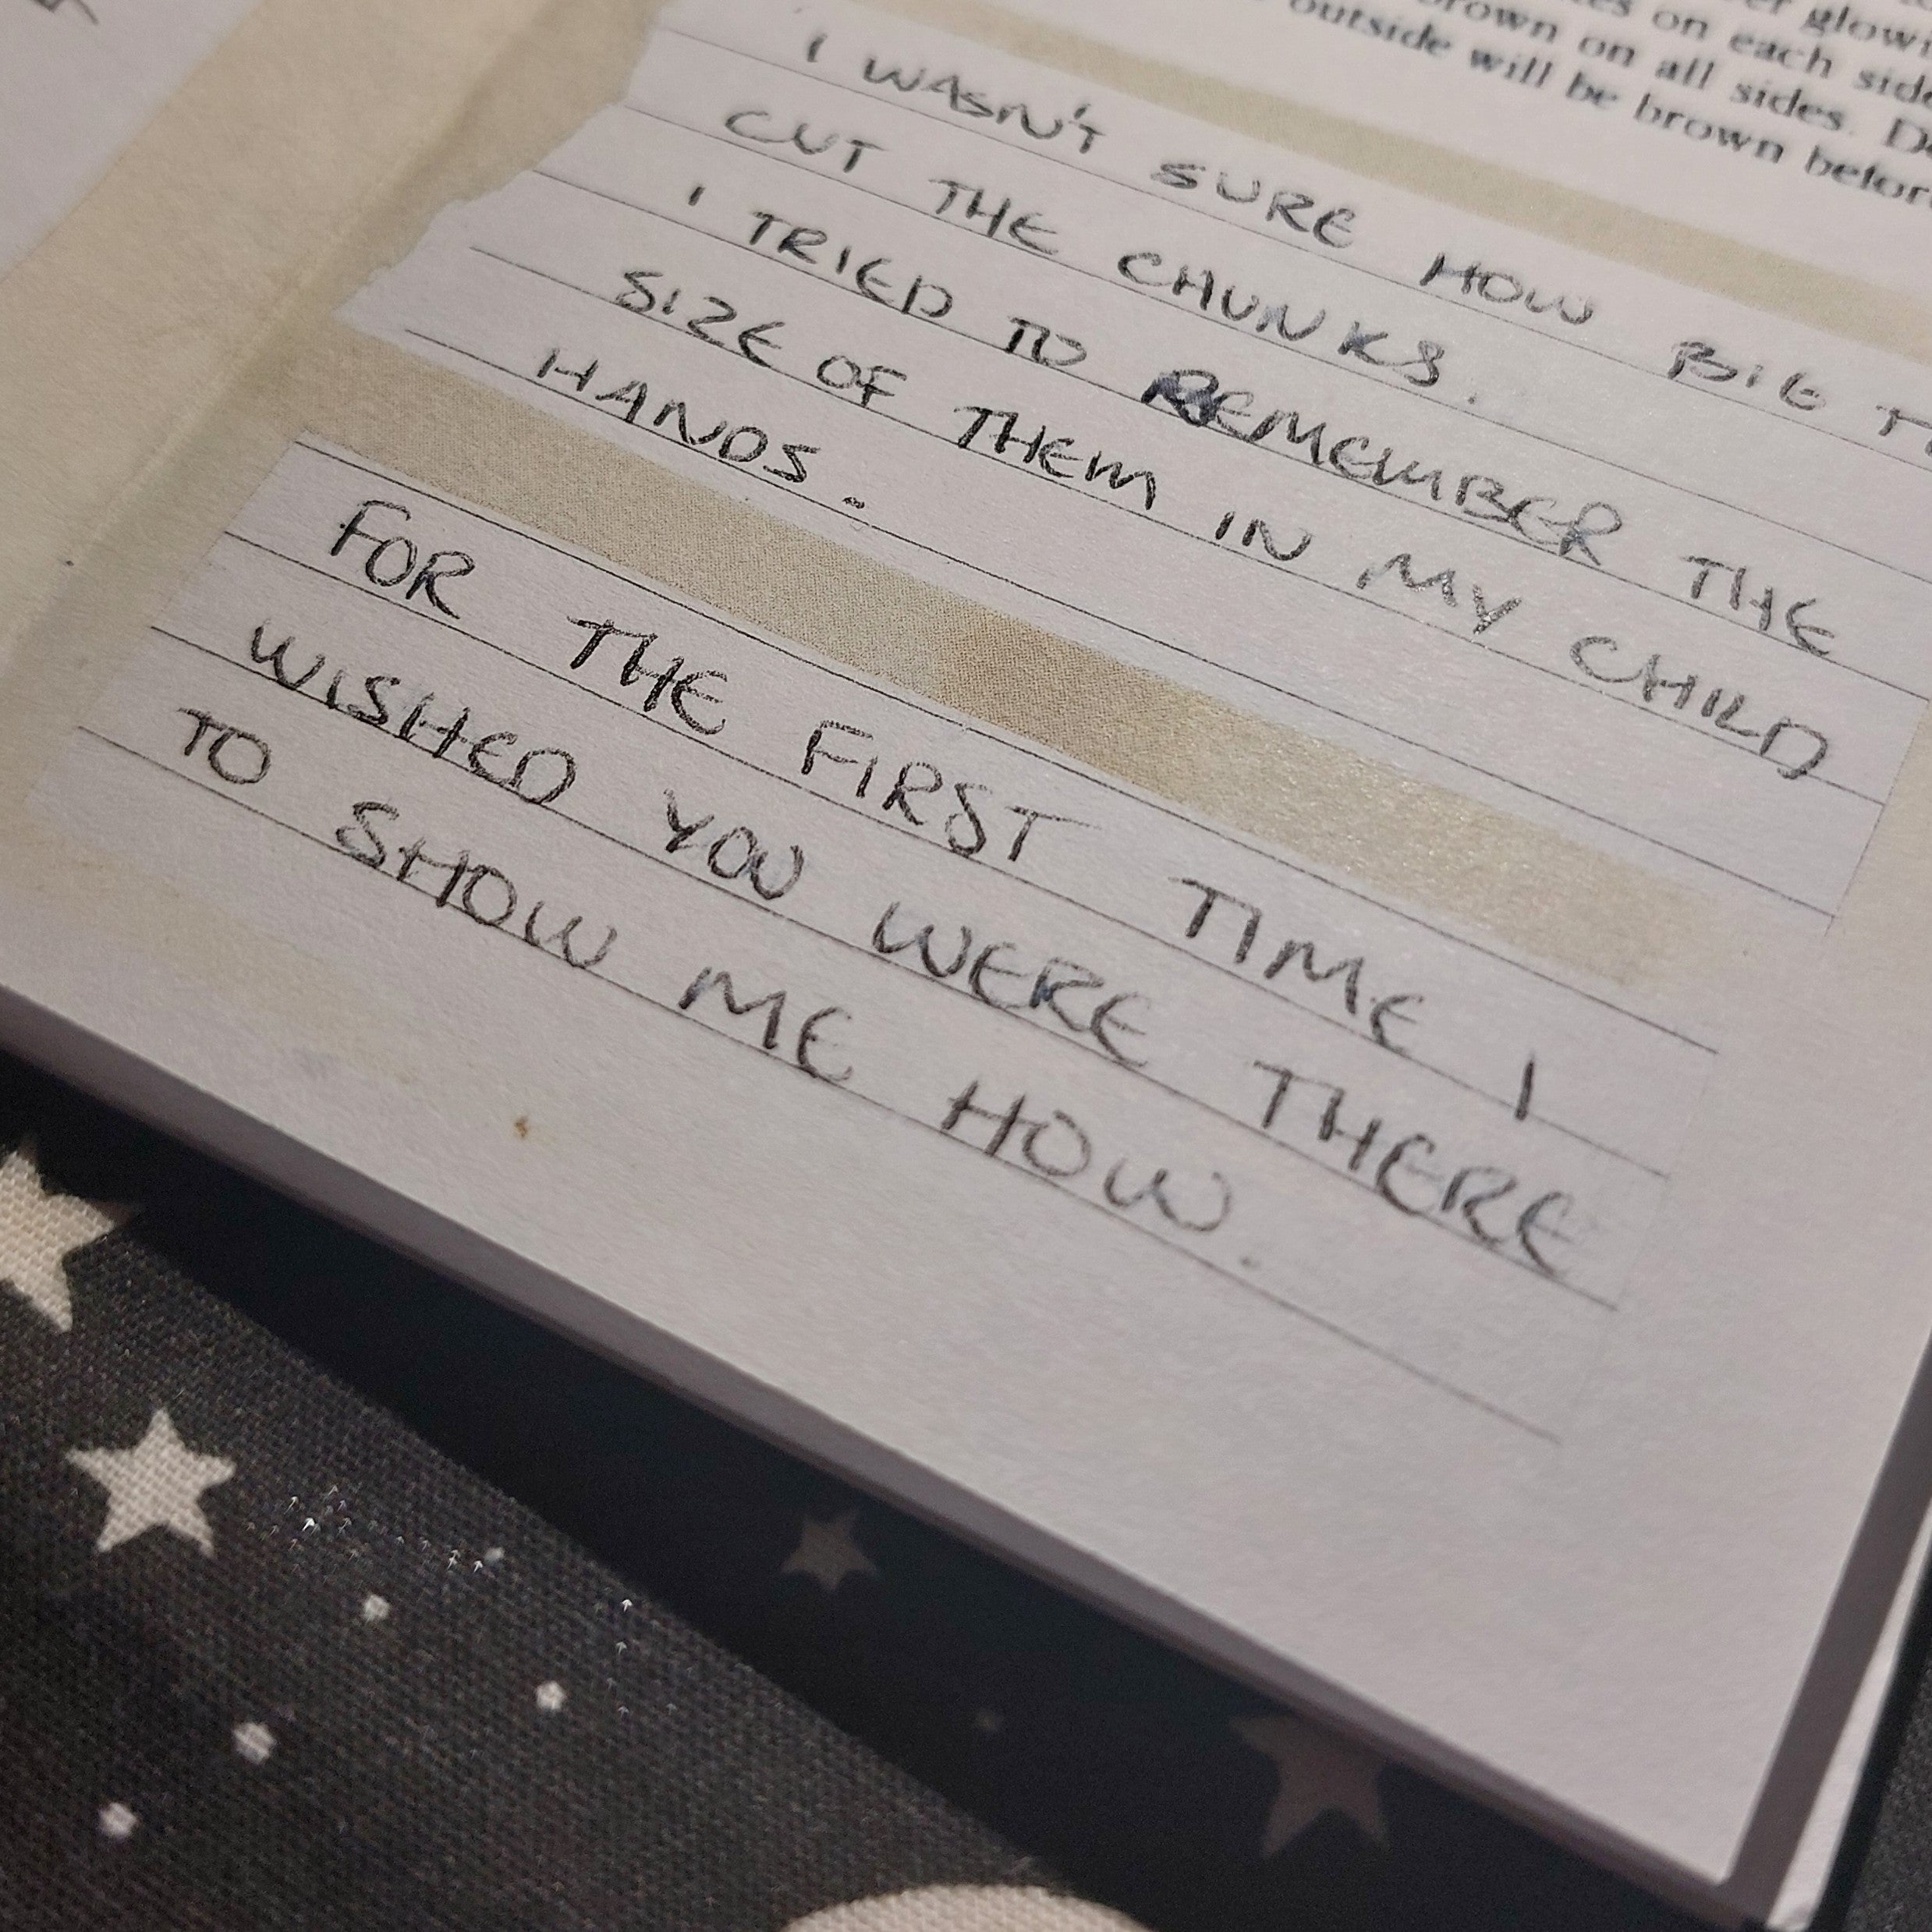 glowi
on each side
brown on all sides.
outside will be brown
I WASN'T SURE HOW BIG
CUT THE CHUNKS.
I TRIED TO REMEMBER THE
SIZE OF THEM IN MY CHILD
HANDS.
FOR THE FIRST TIME I
WISHED YOU WERE THERE
TO SHOW ME HOW.